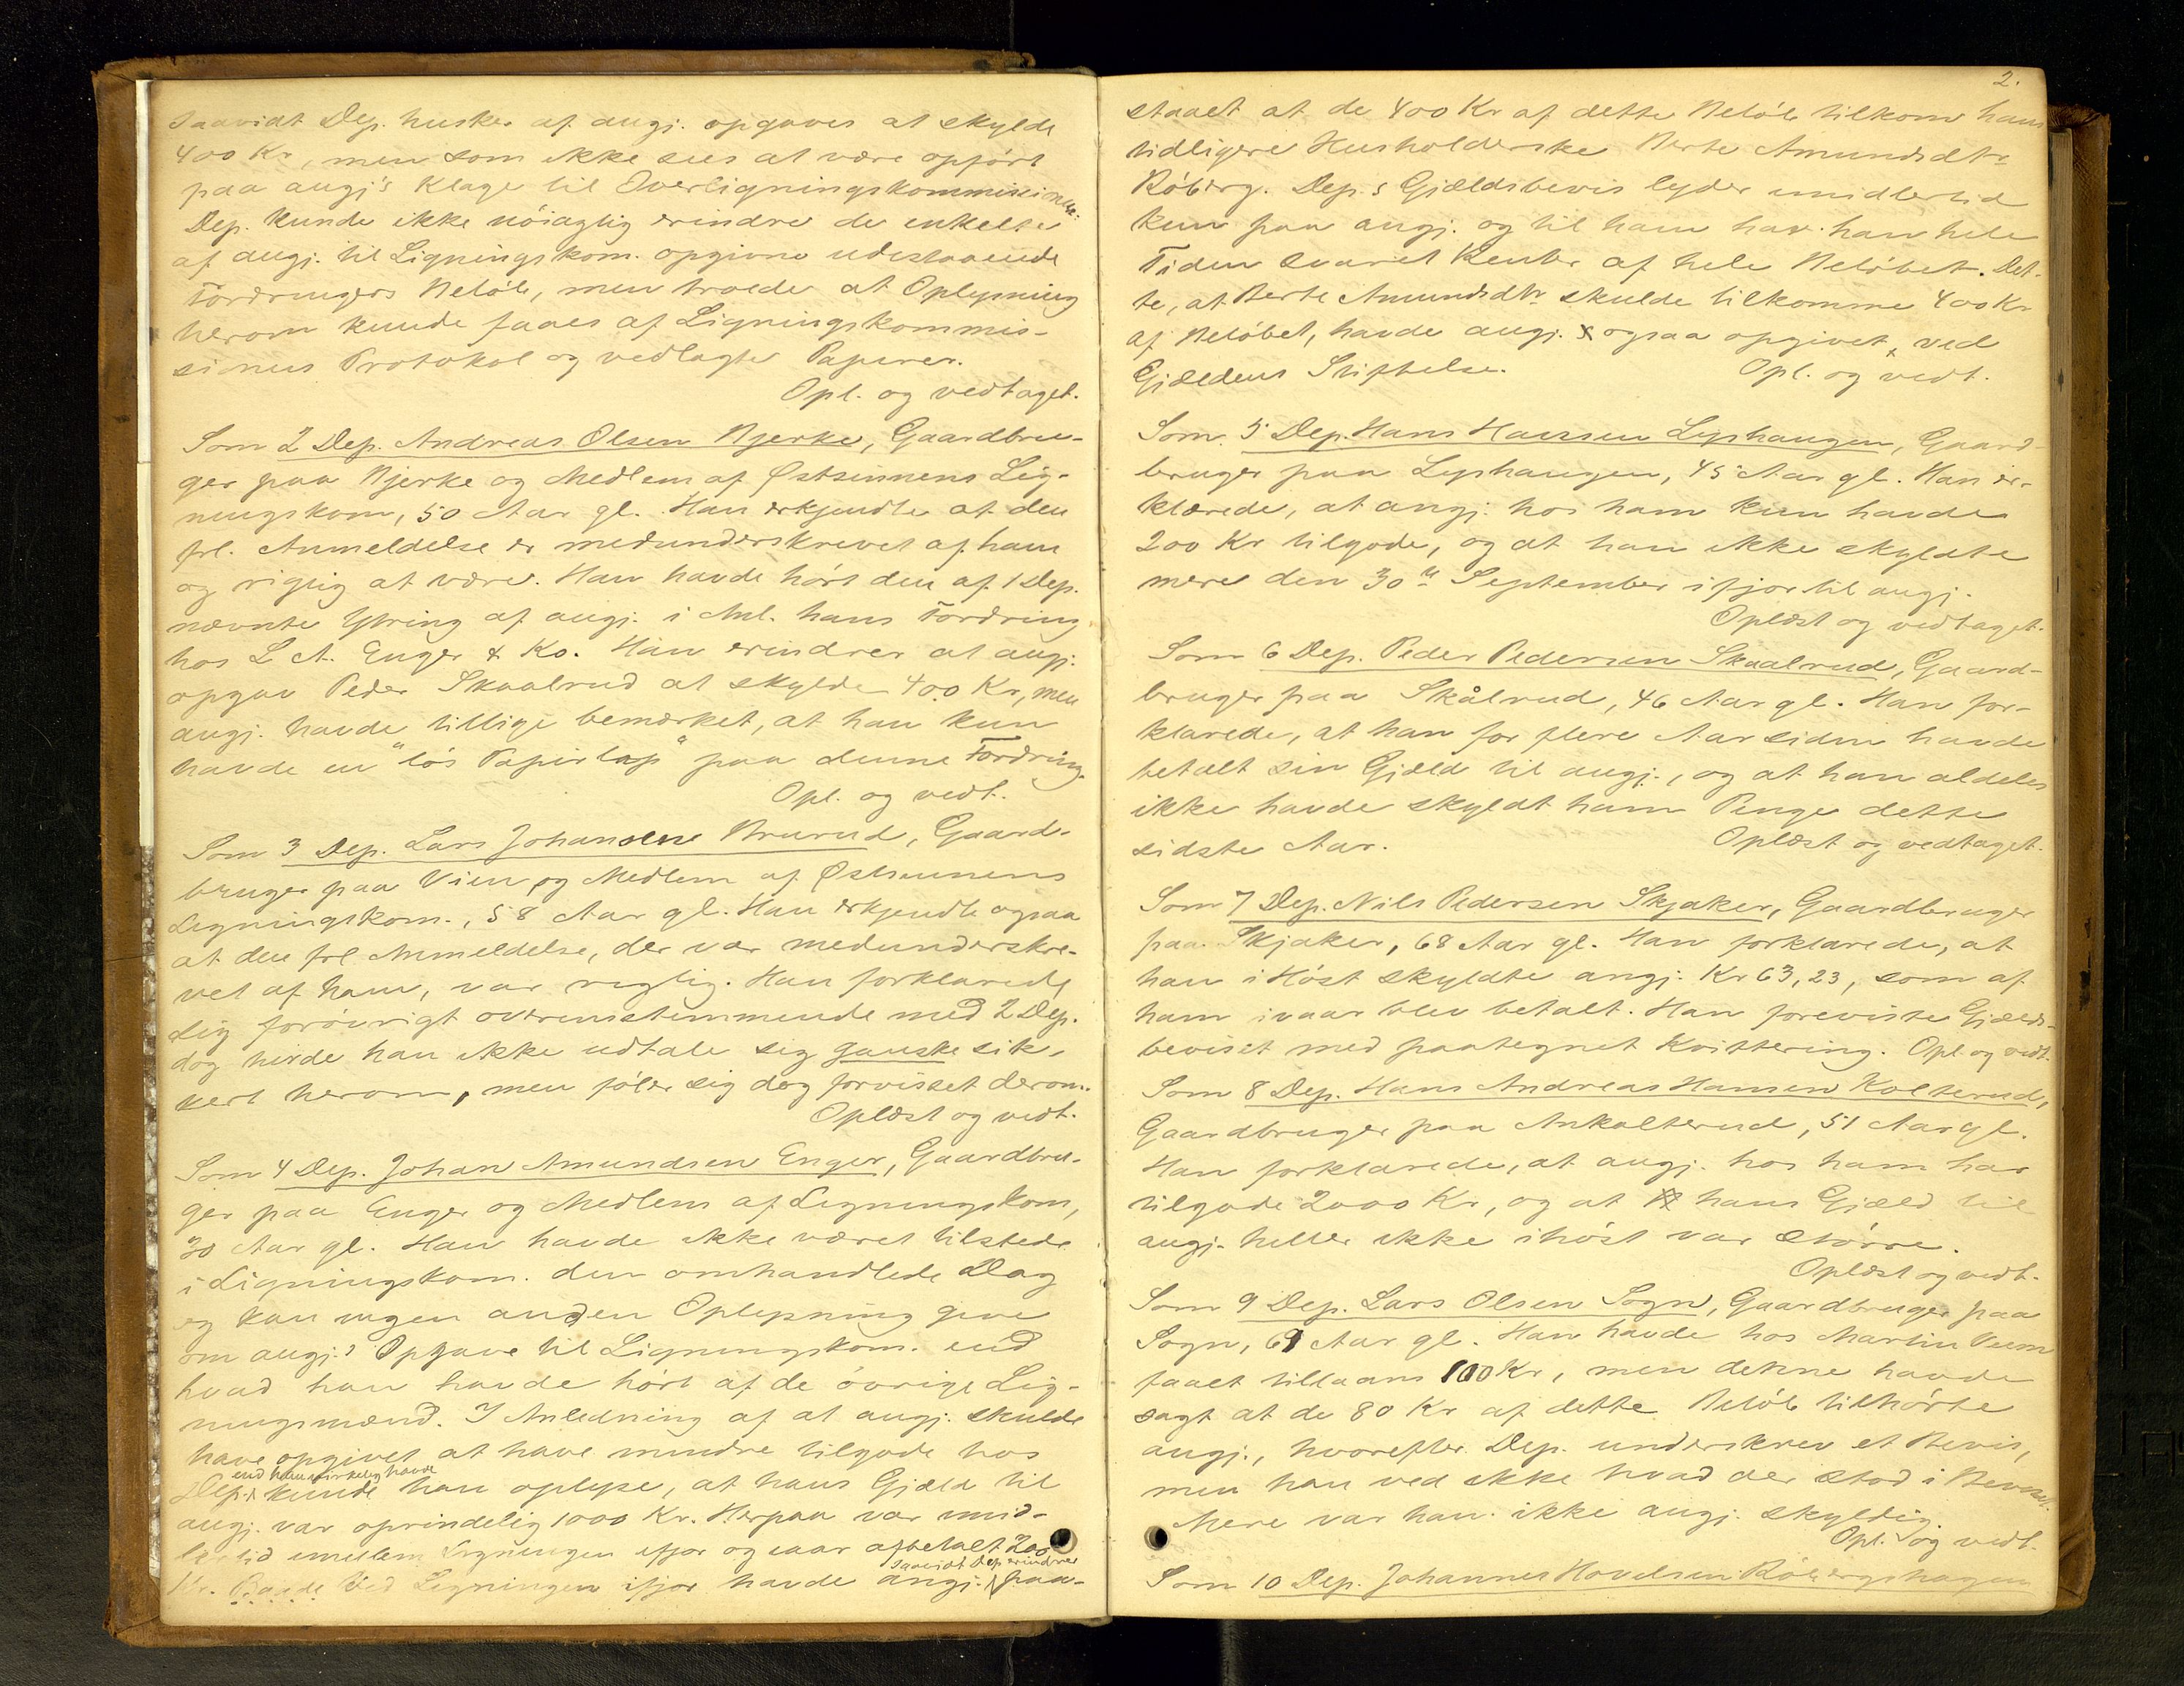 saavidt Dep. husker af angj. opgaves at skylde
400 Kr, men som ikke sees at være opført
paa angj's Klage til Overligningskommissionen.
Dep. kunde ikke nöiagtig erindre de enkelte
af angj. til Ligningskom. opgivne udestaaende
Fordringers Belöb, men troede at Oplysning
herom kunde faaes af Ligningskommis-
sionens Protokol og vedlagte Papirer.
Opl. og vedtaget.
Som 2 Dep. Andreas Olsen Bjerke, Gaardbru-
ger paa Bjerke og Medlem af Østsinnens Lig-
ningskom, 50 Aar gl. Han erkjendte at den
frl. Anmeldelse er medunderskrevet af ham
og rigtig at være. Han havde hört den af 1 Dep.
nævnte Ytring af angj. i Anl. hans Fordring
hos L. A. Enger & Ko. Han erindrer at angj.
opgav Peder Skaalrud at skylde 400 Kr, men
angj. havde tillige bemærket, at han kun
havde en "lös Papirlap" paa denne Fordring.
Opl. og vedt.
Som 3 Dep. Lars Johansen Brurud, Gaard-
bruger paa Vien og Medlem af Østsinnens
Ligningskom., 58 Aar gl. Han erkjendte ogsaa
at den frl Anmeldelse, der var medunderskre-
vet af ham, var rigtig. Han forklarede
sig foröivrigt overensstemmende med 2 Dep.
dog turde han ikke udtale sig ganske sik-
kert herom, men föler sig dog forvisset derom.
Oplæst og vedt.
Som 4 Dep. Johan Amundsen Enger, Gaardbru-
ger paa Enger og Medlem af Ligningskom,
30 Aar gl. Han havde ikke været tilstede
i Ligningskom. den omhandlede Dag
og kan ingen anden Oplysning give
om angj.s Opgave til Ligningskom. end
hvad han havde hört af de övrige Lig-
ningsmænd. I Anledning af at angj. skulde
have opgivet at have mindre tilgode hos
end han virkelig havde
Dep. kunde han oplyse, at hans Gjæld til
angj. var oprindelig 1000 Kr. Herpaa var imid-
lertid imellem Ligningen ifjor og iaar afbetalt 200
saavidt Dep erindrer
Kr. Baade Ved Ligningen ifjor havde angj. paa-
2.
staaet at de 400 Kr af dette Belöb tilkom hans
tidligere Husholderske Berte Amundsdtr
Röberg. Dep.s Gjældsbevis lyder imidlertid
kun paa angj. og til ham har han hele
Tiden svaret Renter af hele Belöbet. Det-
te, at Berte Amundsdtr skulde tilkomme 400 Kr
af Belöbet, havde angj. ogsaa opgivet ved
Gjældens Stiftelse. Opl. og vedt.
Som 5 Dep. Hans Hansen Lyshaugen, Gaard-
bruger paa Lyshaugen, 45 Aar gl. Han er-
klærede, at angj. hos ham kun havde
200 Kr tilgode, og at han ikke skyldte
mere den 30te September ifjor til angj.
Oplæst og vedtaget.
Som 6 Dep. Peder Pedersen Skaalrud, Gaard-
bruger paa Skålrud, 46 Aar gl. Han for-
klarede, at han for flere Aar siden havde
betalt sin Gjæld til angj., og at han aldeles
ikke havde skyldt ham Penge dette
sidste Aar. Oplæst og vedtaget.
Som 7 Dep. Nils Pedersen Skjaker, Gaardbruger
paa Skjaker, 68 Aar gl. Han forklarede, at
han i Höst skyldte angj. Kr 63,23, som af
ham ivaar blev betalt. Han foreviste Gjælds-
beviset med paategnet Kvittering. Opl. og vedt.
Som 8 Dep. Hans Andreas Hansen Kolterud,
Gaardbruger paa Ankolterud, 51 Aar gl.
Han forklarede, at angj. hos ham har
tilgode 2000 Kr, og at hans Gjæld til
angj. heller ikke ihöst var större.
Oplæst og vedt.
Som 9 Dep. Lars Olsen Sogn, Gaardbruger paa
Sogn, 69 Aar gl. Han havde hos Martin Veem
faaet tillaans 100 Kr, men denne havde
sagt at de 80 Kr af dette Belöb tilhörte
angj., hvorefter Dep. underskrev et Bevis,
men han ved ikke hvad der stod i Beviset.
Mere var han ikke angj. skyldig.
Opl. og vedt.
Som 10 Dep. Johannes Hovelsen Röbergshagen